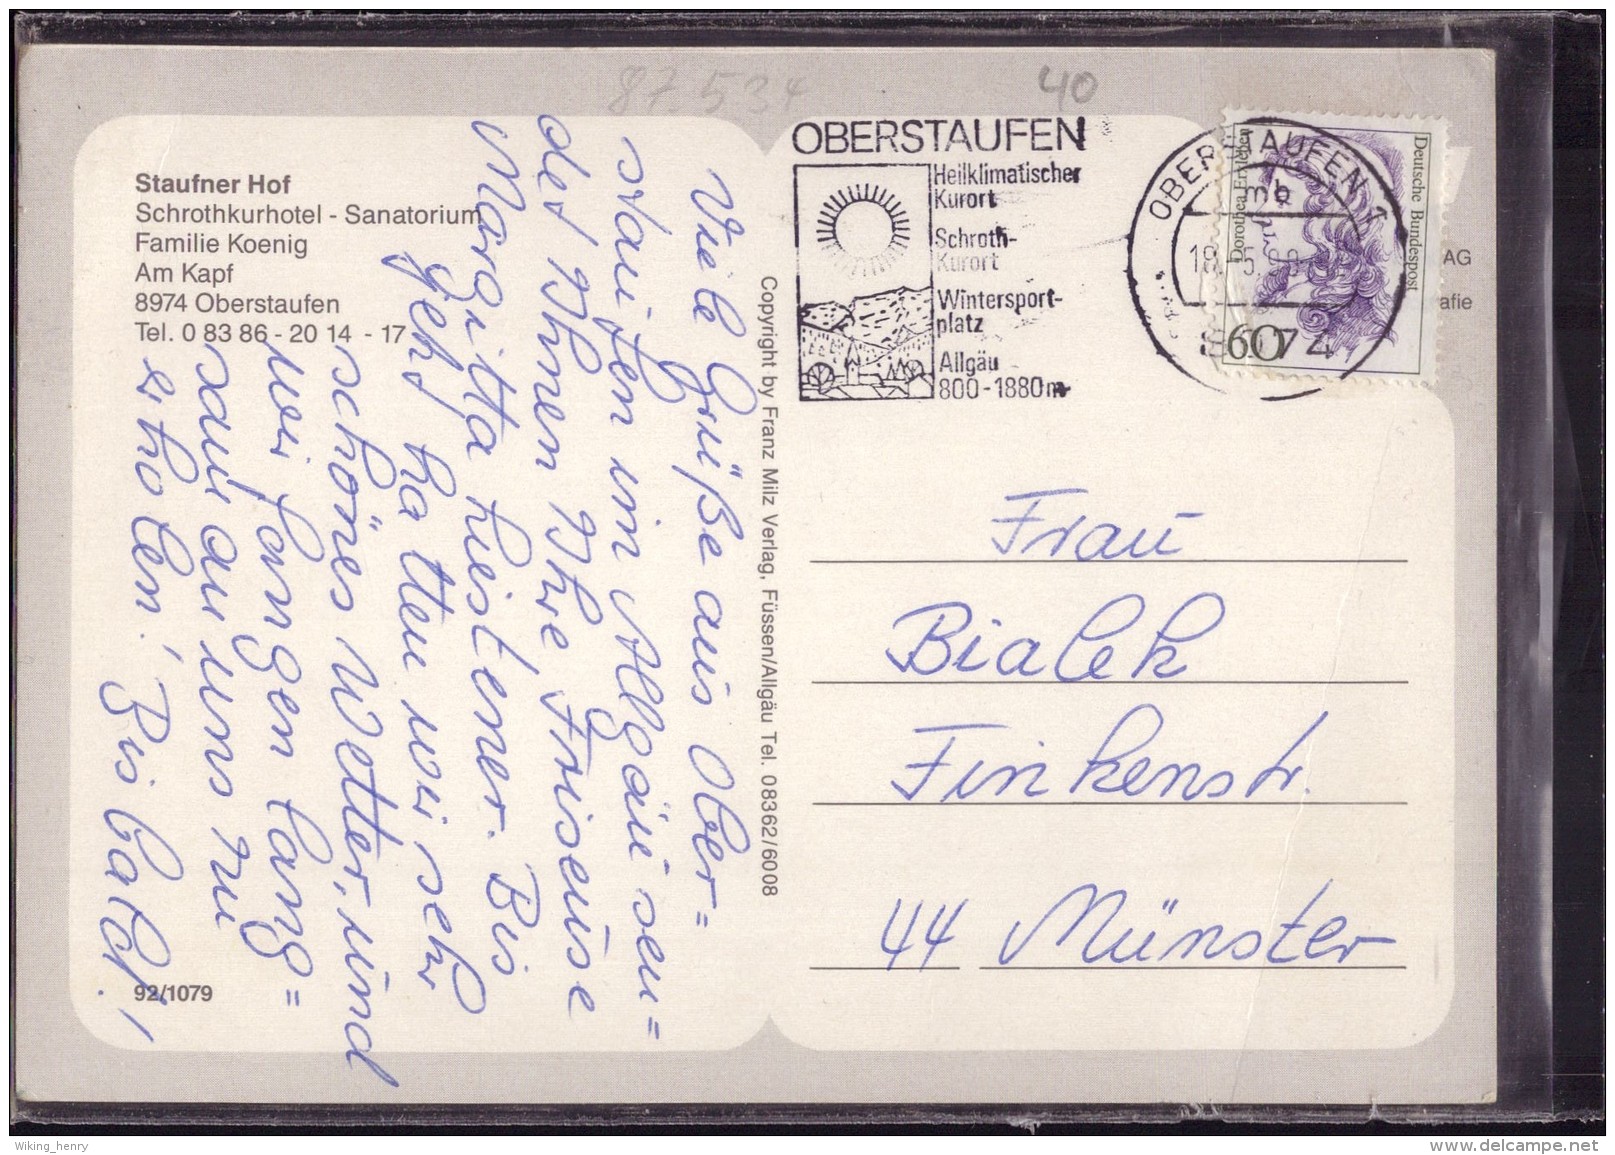 87.534
40
Staufner Hof
Schrothkurhotel - Sanatorium
Familie Koenig
Am Kapf
8974 Oberstaufen
Tel. 0 83 86 - 20 14 - 17
92/1079
Viele Grüße aus Ober=
staufen im Allgäu sen=
det Ihnen Ihre Friseuse
Margitta Kiestener. Bis
jetzt hatten wir sehr
schönes Wetter, und
wir fangen lang=
sam an uns zu
erholen! Bis bald!
Copyright by Franz Milz Verlag, Füssen/Allgäu Tel. 08362/6008
OBERSTAUFEN
Heilklimatischer
Kurort
Schroth-
Kurort
Wintersport-
platz
Allgäu
800-1880m
OBERSTAUFEN 1
mb
Deutsche Bundespost
Dorothea Erxleben
60
AG
afie
Frau
Bialek
Finkenstr.
44 Münster
Wiking_henry
www.delcampe.net